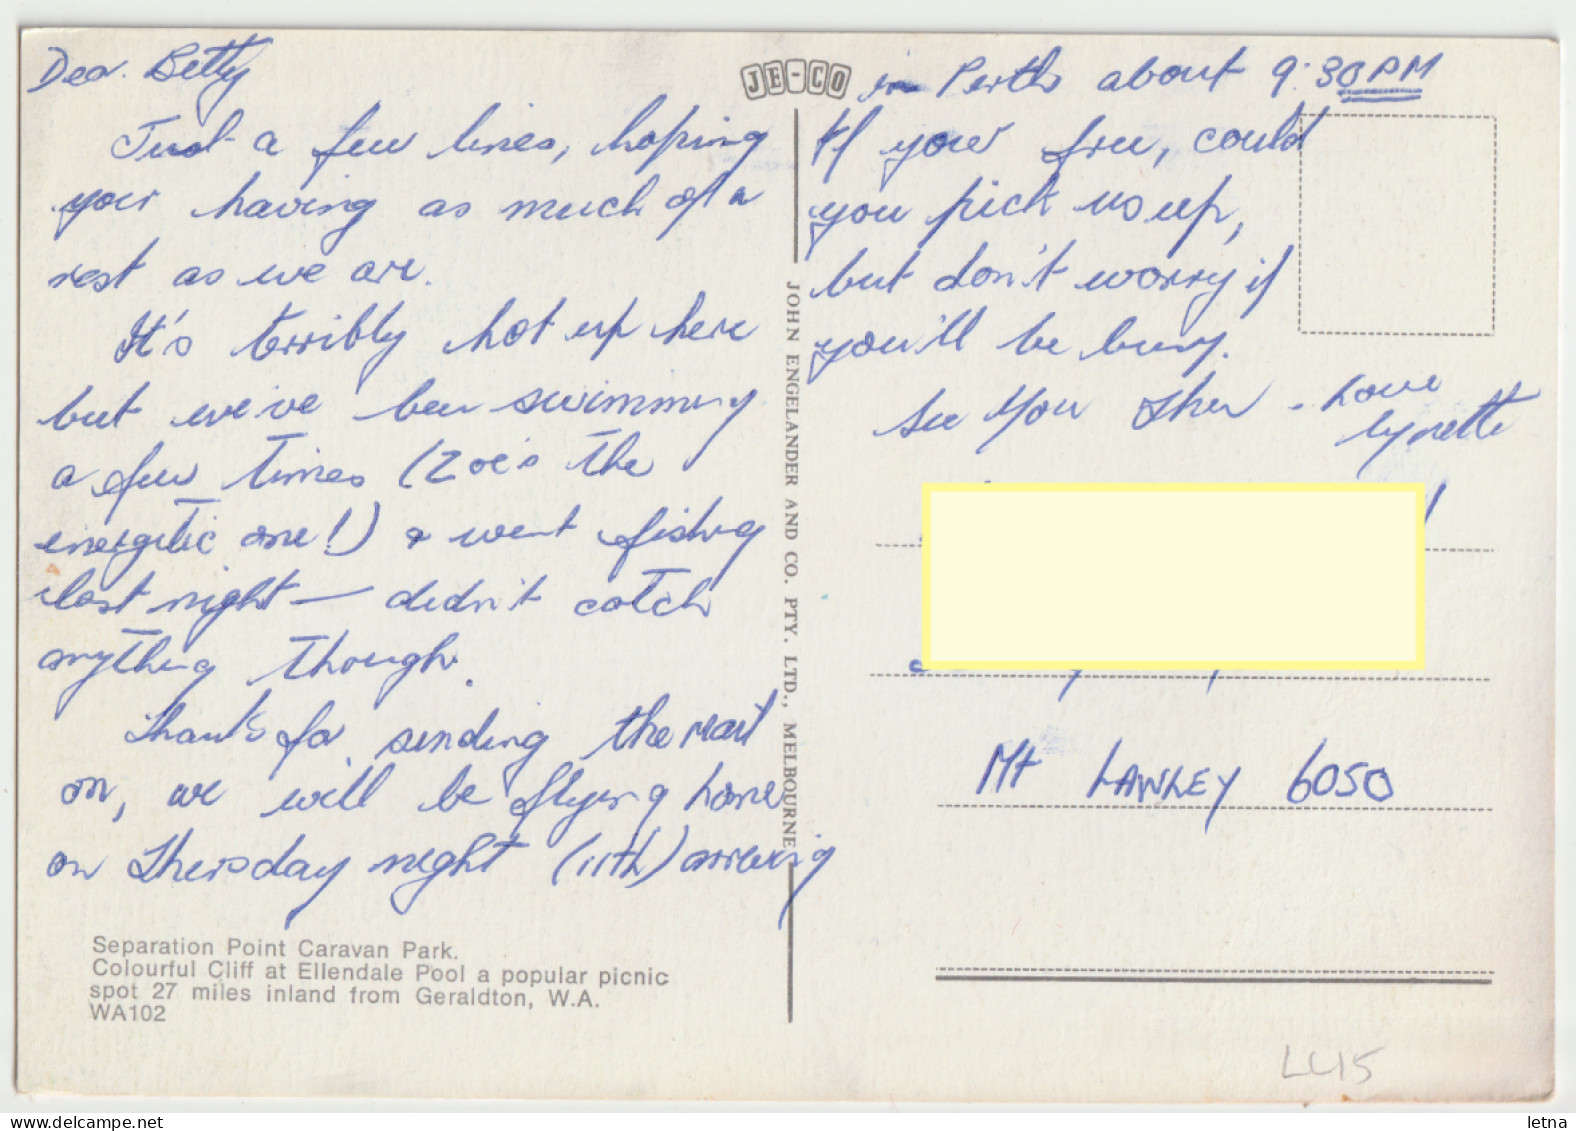 Dear Betty
Just a few lines, hoping
your having as much of a
rest as we are.
It's terribly hot up here
but we've been swimming
a few times (Zoe's the
energetic one!) & went fishing
last night — didn't catch
anything though.
Thanks for sending the mail
on, we will be flying home
on Thersday night (11th) arriving
in Perth about 9:30PM
If your free, could
you pick us up,
but don't worry if
you'll be busy.
See you then - Love
Lynette
Mt LAWLEY 6050
JE-CO
JOHN ENGELANDER AND CO. PTY. LTD., MELBOURNE
Separation Point Caravan Park.
Colourful Cliff at Ellendale Pool a popular picnic
spot 27 miles inland from Geraldton, W.A.
WA102
LL15
letna